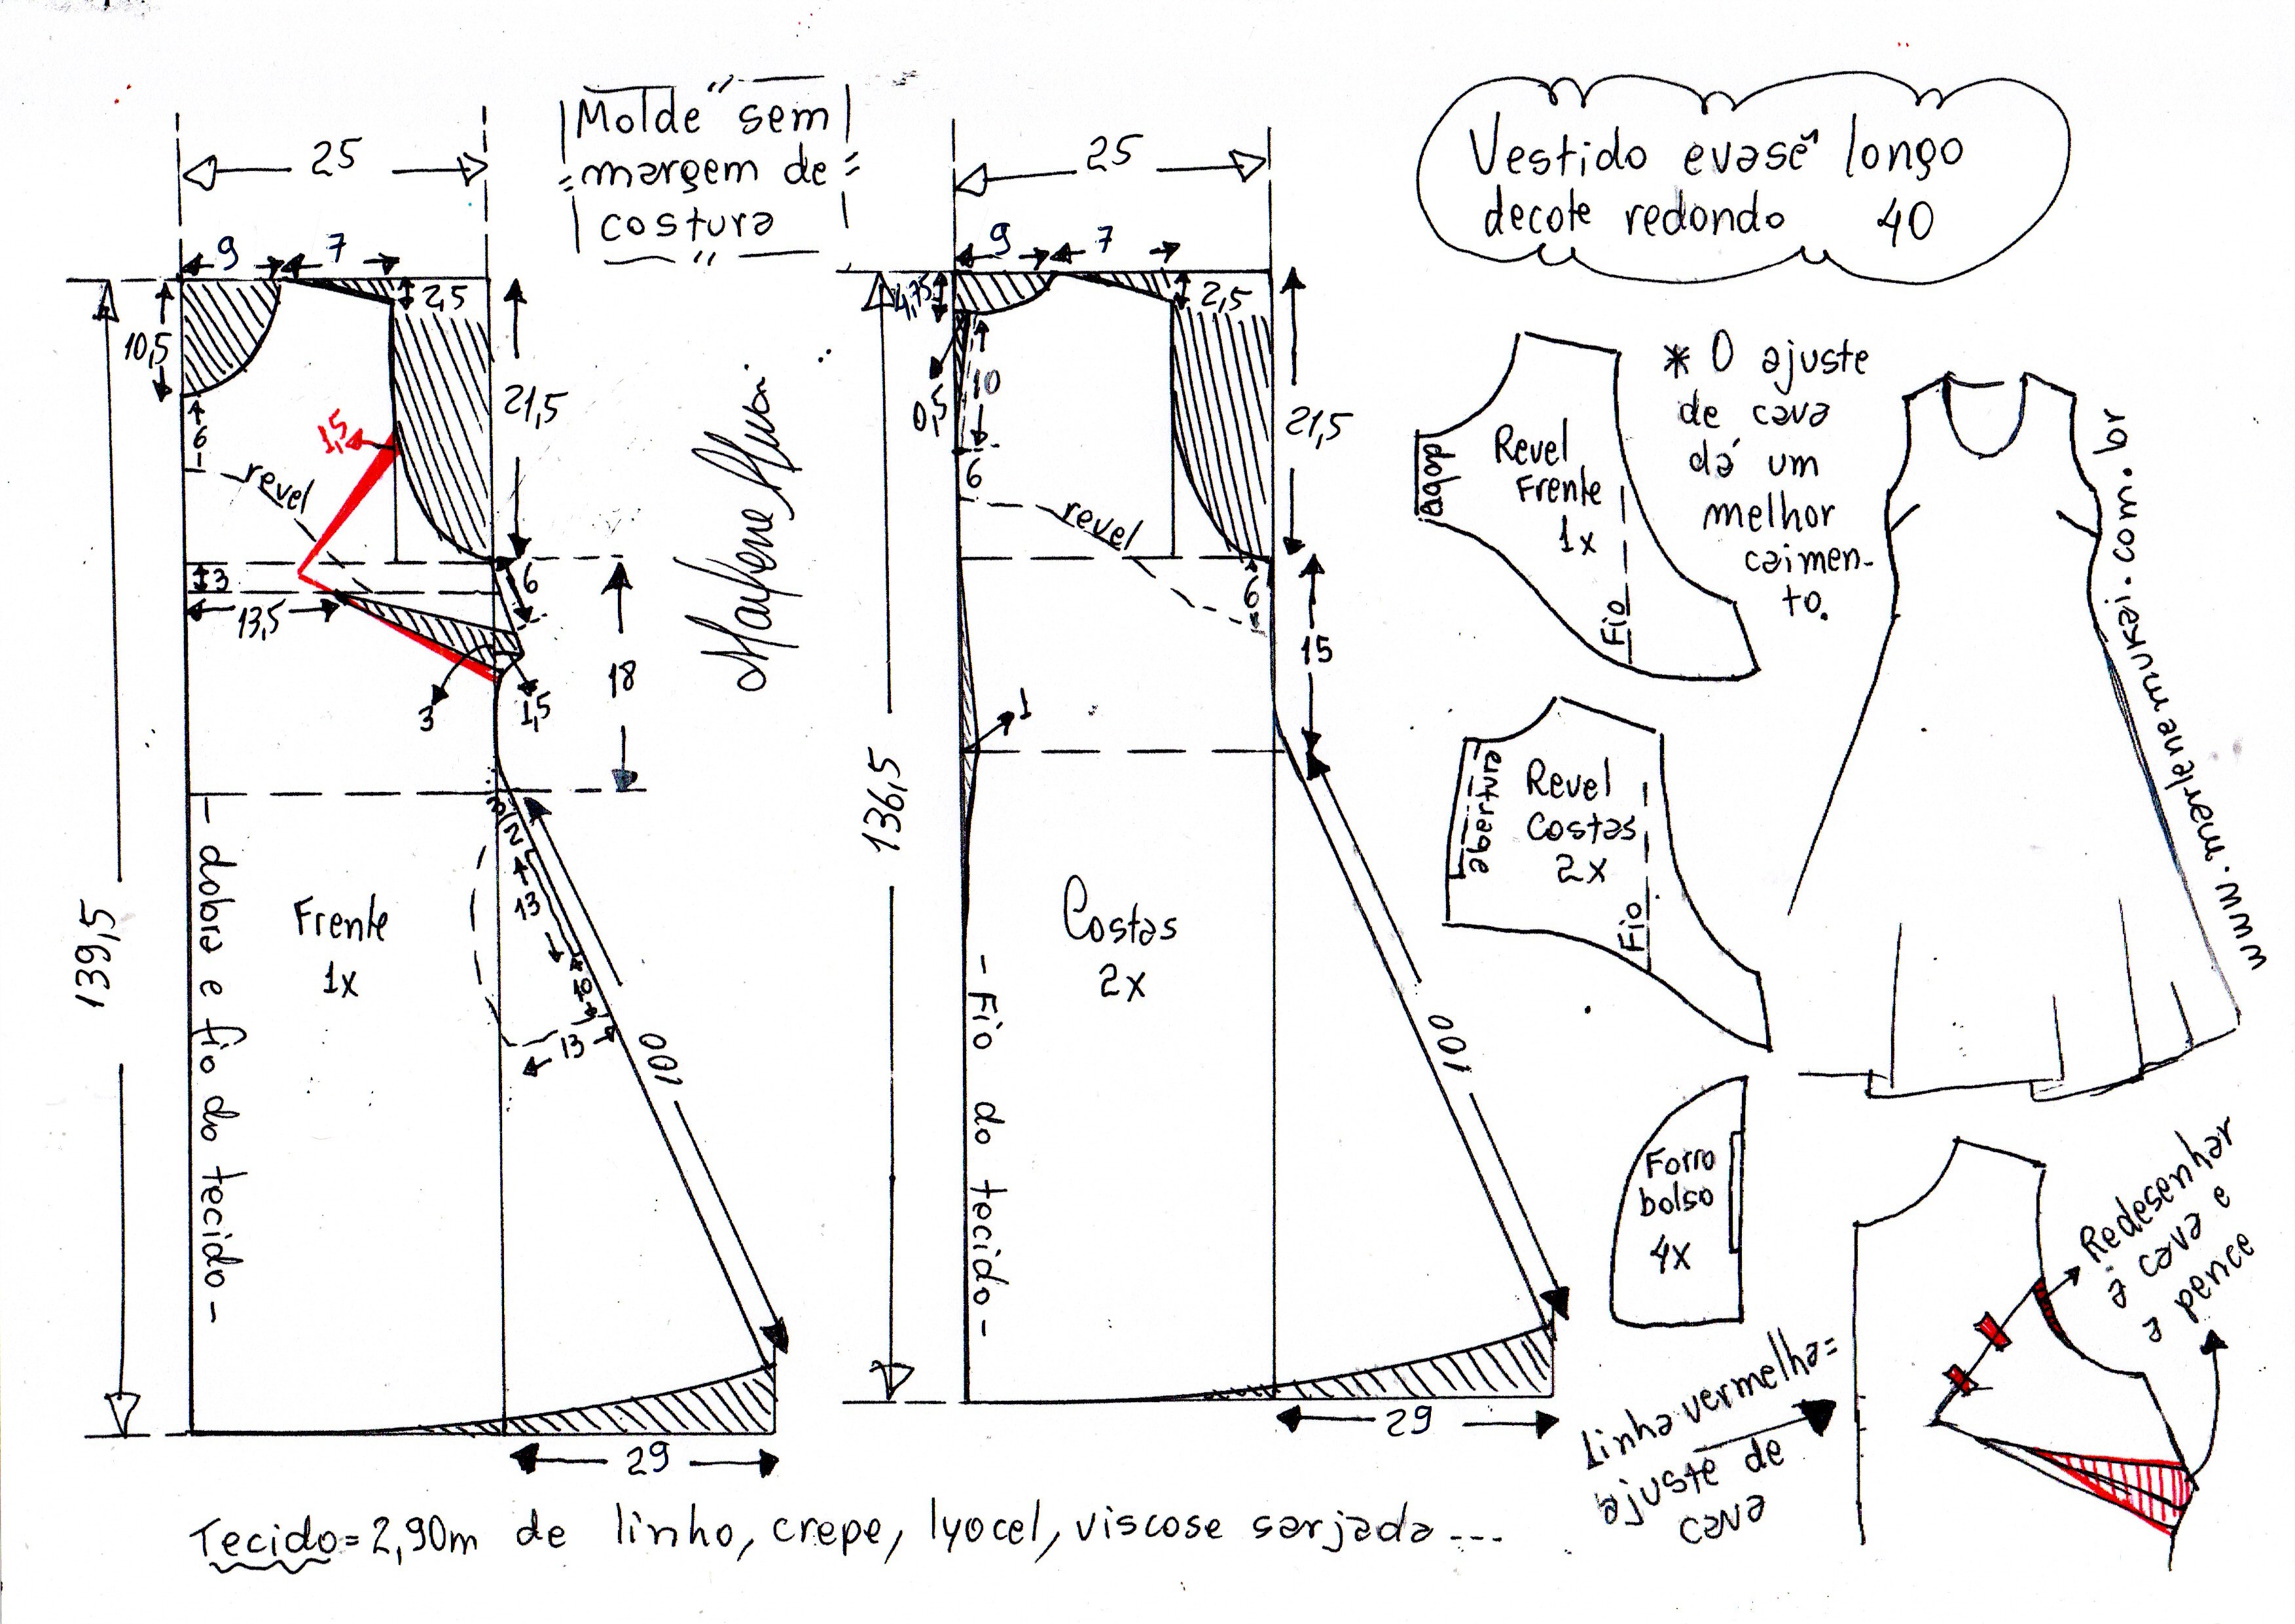 "Molde sem
margem de
costura"
Vestido evasê longo
decote redondo 40
25
9
7
2,5
10,5
6
1,5
revel
21,5
3
13,5
6
3
1,5
18
139,5
- dobra e fio do tecido -
Frente
1x
3
2
13
10
13
100
29
Marlene Mukai
25
9
7
4,75
2,5
10
0,5
6
revel
21,5
6
15
1
136,5
Costas
2x
- Fio do tecido -
100
29
dobra
Revel
Frente
1x
Fio
* O ajuste
de cava
dá um
melhor
caimen-
to.
abertura
Revel
Costas
2x
Fio
www.marlenemukai.com.br
Forro
bolso
4x
Redesenhar
a cava e
a pence
linha vermelha=
ajuste de
cava
Tecido=2,90m de linho, crepe, lyocel, viscose sarjada...